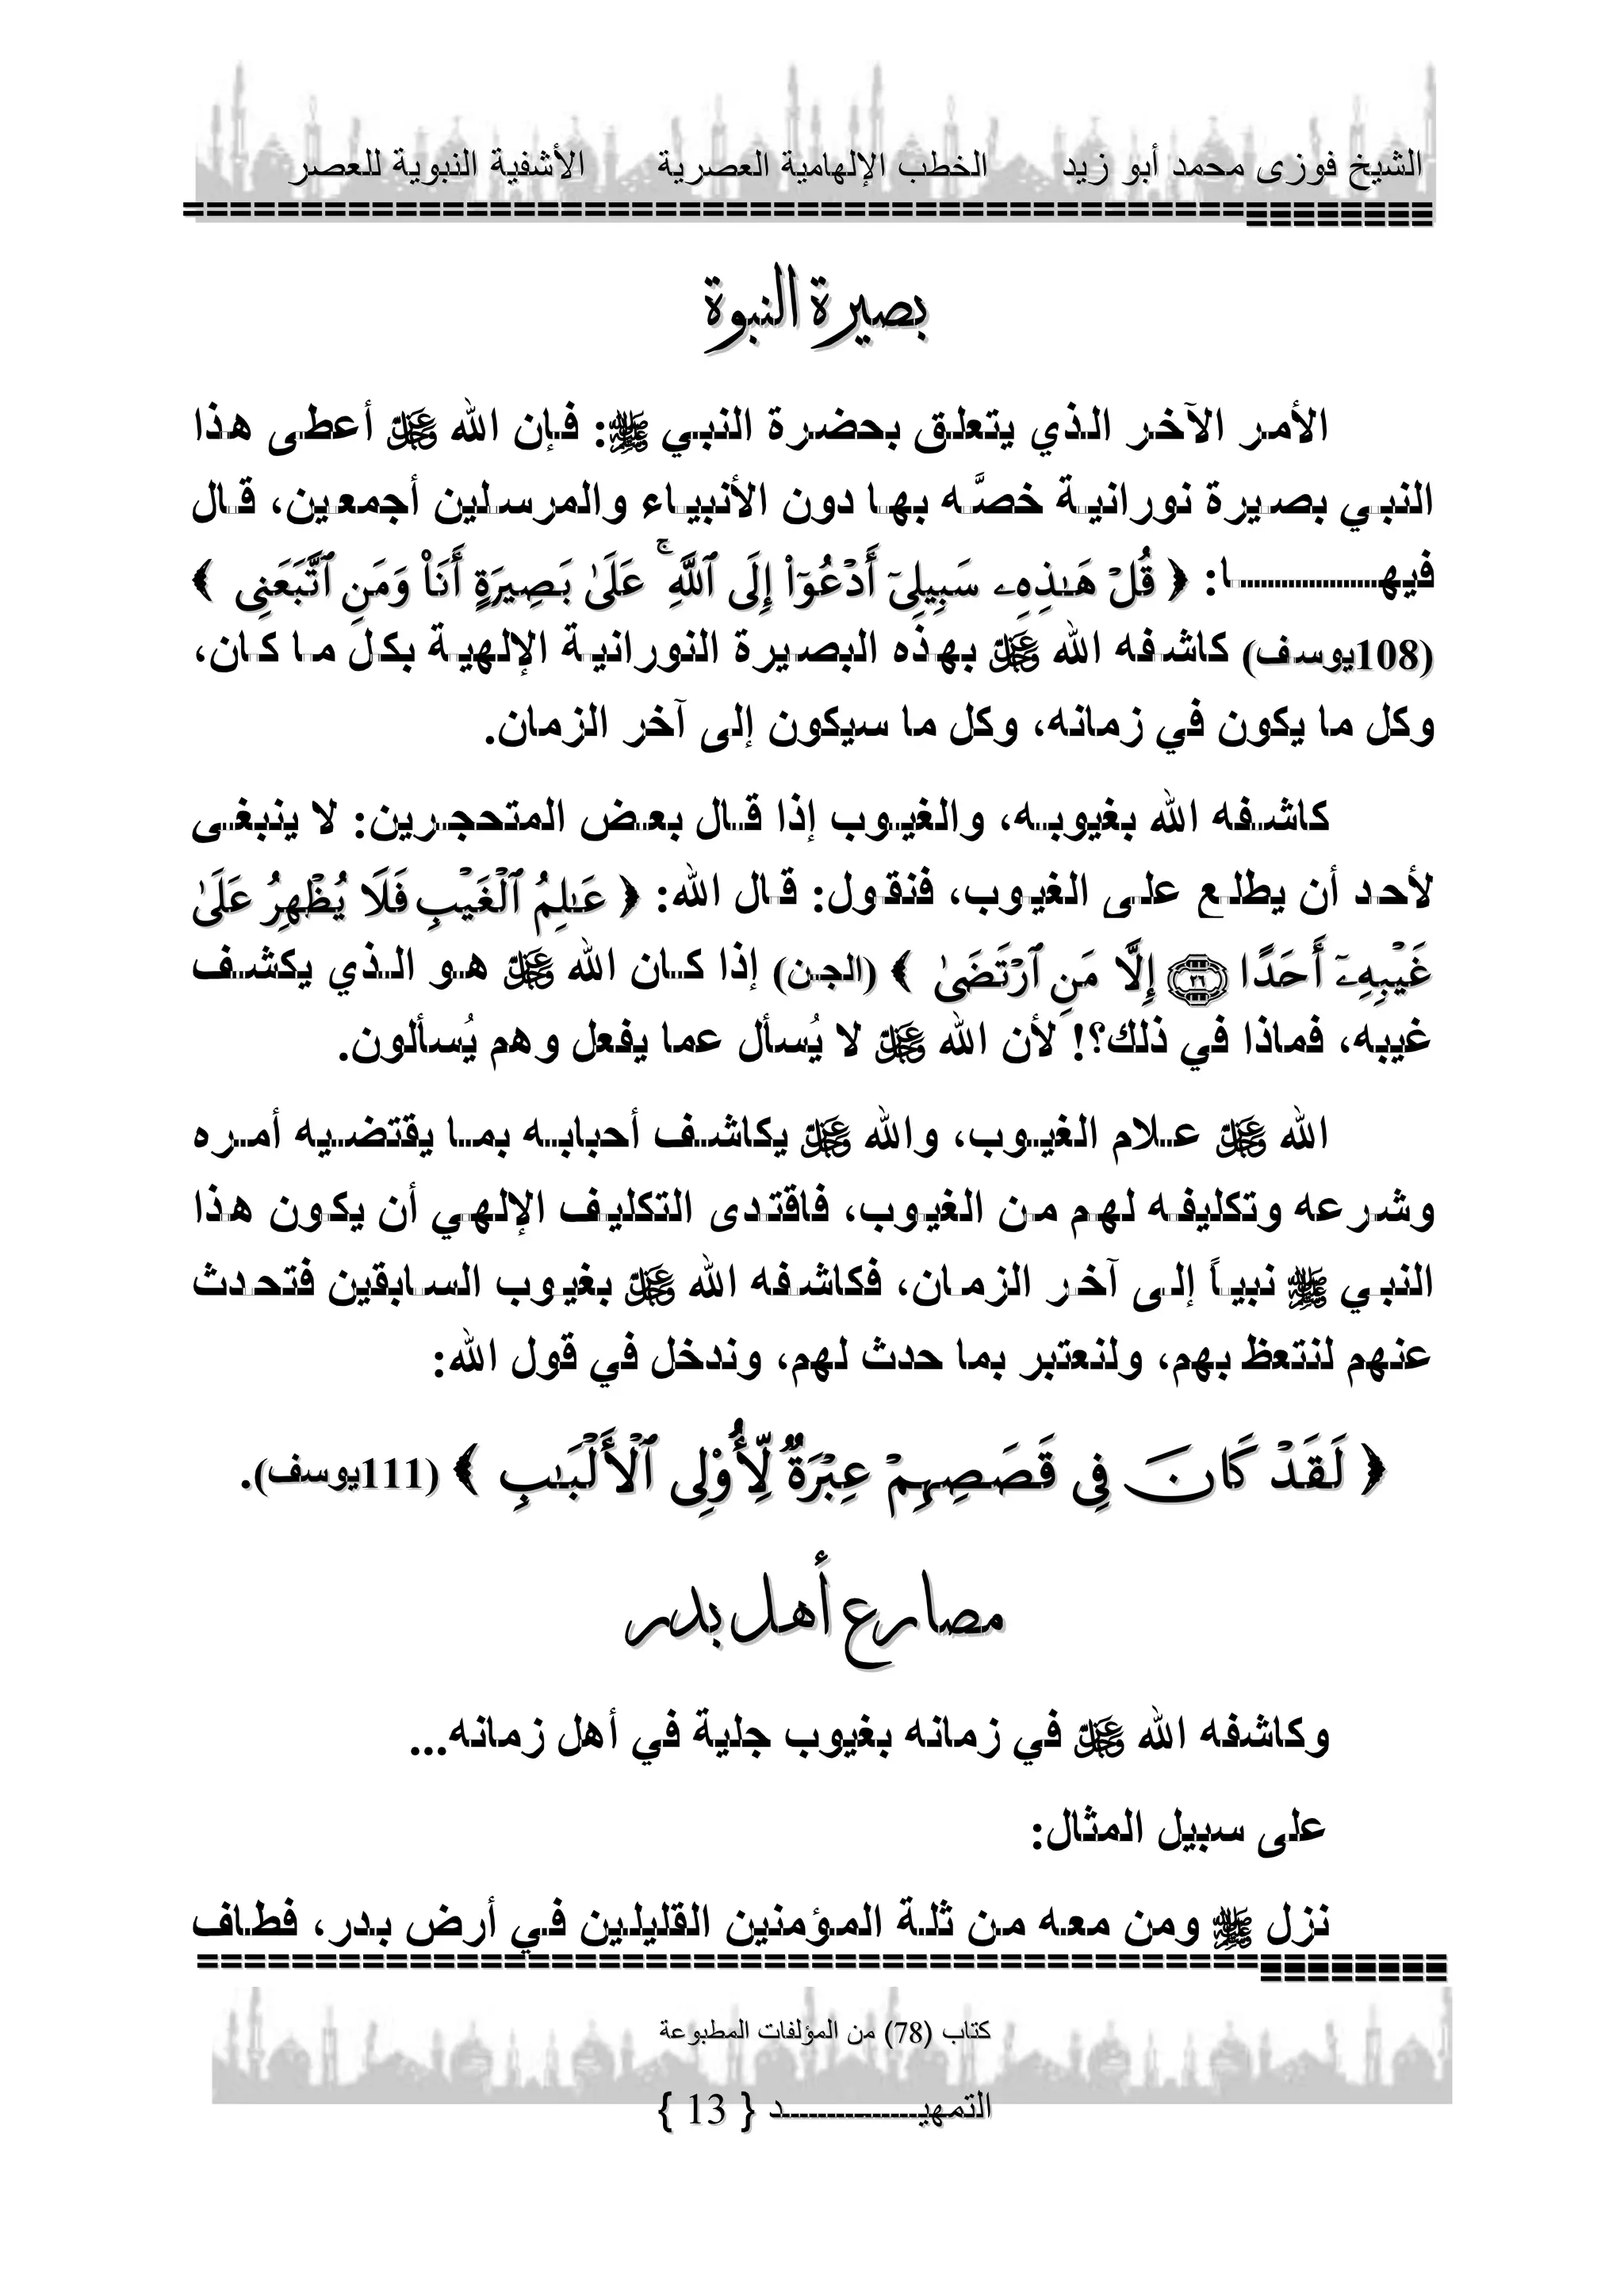 الشيخ فوزى محمد أبو زيد الخطب الإلهامية العصرية الأشفية النبوية للعصر
بصيرة النبوة
الأمر الآخر الذي يتعلق بحضرة النبي ﷺ: فإن الله عزوجل أعطى هذا
النبي بصيرة نورانية خصَّه بها دون الأنبياء والمرسلين أجمعين، قال
فيهــــــــا: ﴿ قُلْ هَـٰذِهِۦ سَبِيلِىٓ أَدْعُوٓا۟ إِلَى ٱللَّهِ ۚ عَلَىٰ بَصِيرَةٍ أَنَا۠ وَمَنِ ٱتَّبَعَنِى ﴾
(108يوسف) كاشفه الله عزوجل بهذه البصيرة النورانية الإلهية بكل ما كان،
وكل ما يكون في زمانه، وكل ما سيكون إلى آخر الزمان.
كاشفه الله بغيوبه، والغيوب إذا قال بعض المتحجرين: لا ينبغى
لأحد أن يطلع على الغيوب، فنقول: قال الله: ﴿ عَـٰلِمُ ٱلْغَيْبِ فَلَا يُظْهِرُ عَلَىٰ
غَيْبِهِۦٓ أَحَدًا ٢٦ إِلَّا مَنِ ٱرْتَضَىٰ ﴾ (الجن) إذا كان الله عزوجل هو الذي يكشف
غيبه، فماذا في ذلك؟! لأن الله عزوجل لا يُسأل عما يفعل وهم يُسألون.
الله عزوجل علام الغيوب، والله عزوجل يكاشف أحبابه بما يقتضيه أمره
وشرعه وتكليفه لهم من الغيوب، فاقتدى التكليف الإلهي أن يكون هذا
النبي ﷺ نبياً إلى آخر الزمان، فكاشفه الله عزوجل بغيوب السابقين فتحدث
عنهم لنتعظ بهم، ولنعتبر بما حدث لهم، وندخل في قول الله:
﴿ لَقَدْ كَانَ فِى قَصَصِهِمْ عِبْرَةٌ لِّأُو۟لِى ٱلْأَلْبَـٰبِ ﴾ (111يوسف).
مصارع أهل بدر
وكاشفه الله عزوجل في زمانه بغيوب جلية في أهل زمانه...
على سبيل المثال:
نزل ﷺ ومن معه من ثلة المؤمنين القليلين في أرض بدر، فطاف
كتاب (78) من المؤلفات المطبوعة
التمهيــــــــد { 13 }